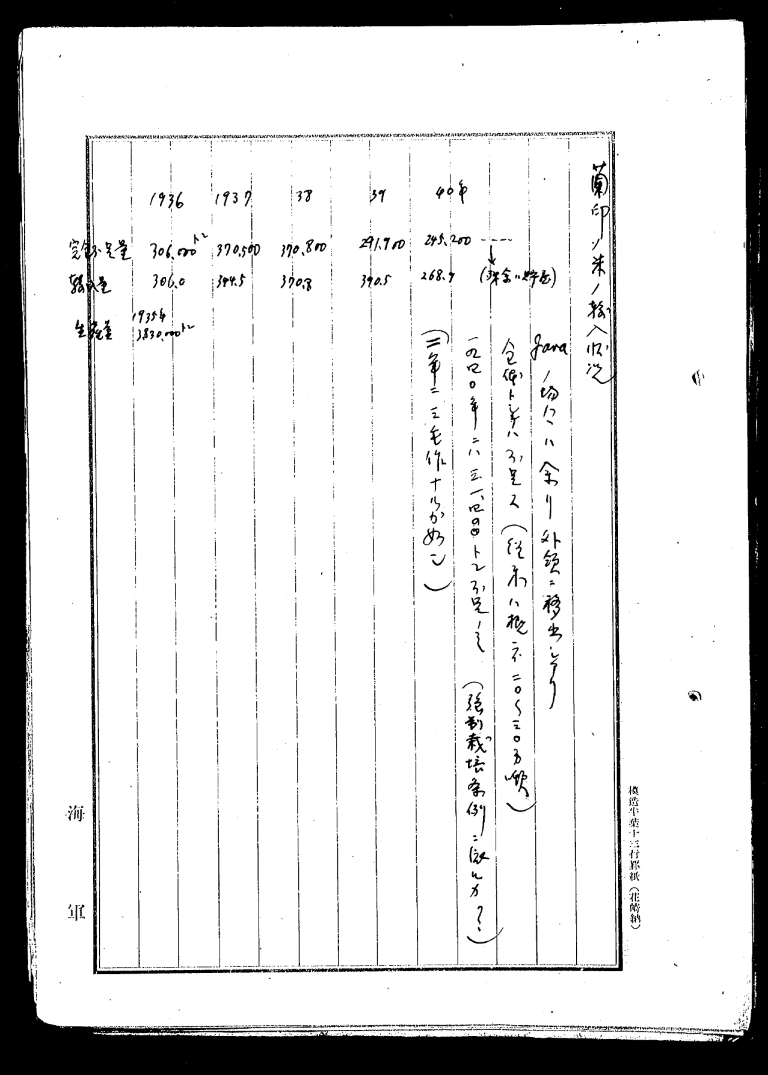 蘭印ノ米ノ輸入状況
Javaノ場合ハ余リ外領ニ移出シアリ
全体トシテハ不足ス(従来ハ概ネ二〇〜三〇万噸)
一九四〇年ニハ三一、四〇〇トン不足ノミ (強制栽培条例ニ依ルカ?)
(二年ニ三毛作ナルガ如シ)
1936 1937 38 39 40年
完全不足量 306.000トン 370,500 370.800 291.900 245.200
輸入量 306.0 344.5 370.8 390.5 268.9
1935年
生産量 3830.000トン
模造半葉十三行罫紙(荘崎納)
海軍